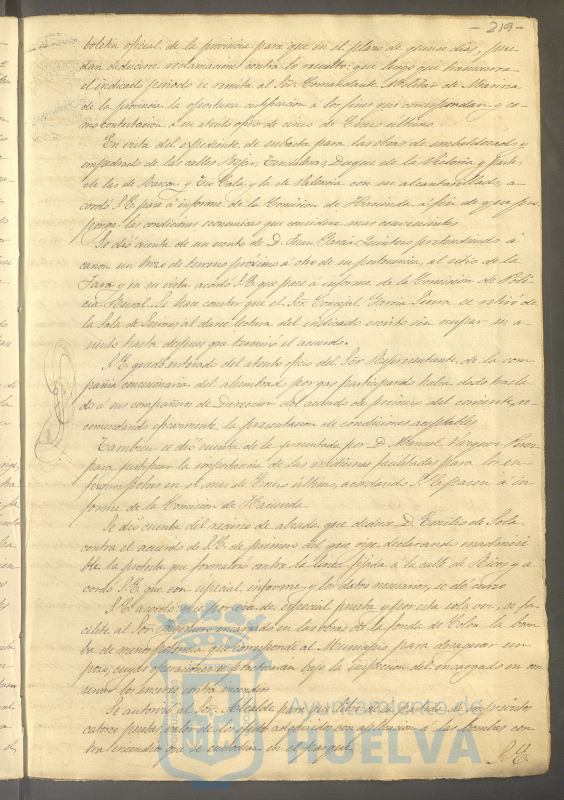 - 219 -
boletin oficial de la provincia para que en el plazo de quince dias, pue-
dan deducirse reclamaciones contra lo resuelto; que luego que transcurra
el indicado periodo se remita al Sor. Comandante Militar de Marina
de la provincia la oportuna certificacion á los fines que correspondan y co-
mo contestacion á su atento oficio de cinco de Enero ultimo.
En vista del expediente de subasta para las obras de embaldosado y
empedrado de las calles Bejar, Duque de la Victoria y parte
de las de y la de Valencia con su alcantarillado, a-
cordó S. E. pase á informe de la Comision de Hacienda á fin de que pro-
ponga las condiciones economicas que considere mas convenientes.
Se dió cuenta de un escrito de D. Juan Garcia Quintero pretendiendo á
canon un trozo de terreno próximo á otro de su pertenencia, al sitio de la
y en su vista acordó S. E. que pase á informe de la Comision de Poli-
cia Rural. Se hace constar que el Sor. Concejal Garcia se retiró de
la Sala de Sesiones al darse lectura del indicado escrito sin ocupar su a-
siento hasta despues que terminó el acuerdo.
S. E. quedó enterado del atento oficio del Sor. Representante de la com-
pañia concesionaria del alumbrado por gas participando haber dado trasla-
do á sus compañeros de Direccion del acuerdo de primero del corriente, re-
comendando eficazmente la presentacion de condiciones aceptables.
Tambien se dió cuenta de la presentada por D. Manuel Perez
para justificar la importancia de las medicinas facilitadas para los en-
fermos pobres en el mes de Enero ultimo, acordando S. E. pasen á in-
forme de la Comision de Hacienda.
Se dió cuenta del recurso de alzada que deduce D. Emilio de Sola
contra el acuerdo de S. E. de primero del que rige declarando inadmisi-
ble la protesta que formulara contra la linea fijada á la calle de Ricos y a-
cordó S. E. que con especial informe y los datos necesarios, se dé curso.
S. E. acordó que por via de especial prueba y por esta sola vez, se fa-
cilite al Sor. encargado en las obras de la fonda de Colon la bom-
ba de menor potencia que corresponde al Municipio para desaguar un
pozo, cuyas operaciones se practicarán bajo la inspeccion del encargado en con-
servar los enseres contra incendios.
Se autorizó al Sor. Alcalde para que libre de la partida de imprevistos
catorce pesetas valor de los efectos adquiridos con aplicacion á las bombas con-
tra incendios que se custodian en el parque.
S. E.
Ayuntamiento de
HUELVA